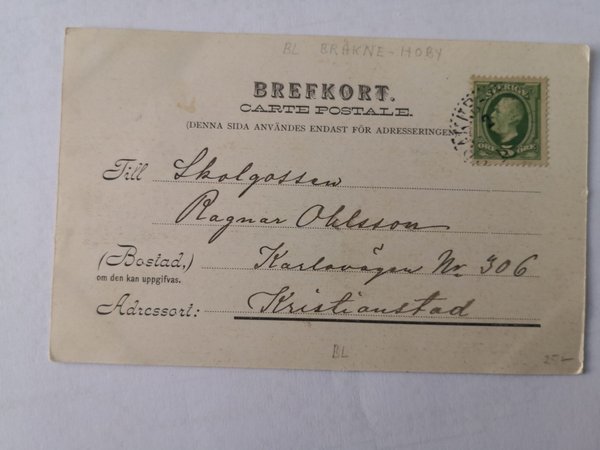 BL BRÄKNE-HOBY
BREFKORT.
CARTE POSTALE.
(DENNA SIDA ANVÄNDES ENDAST FÖR ADRESSERINGEN
SVERIGE
ÖRE ÖRE
Till Skolgossen
Ragnar Ohlsson
(Bostad,) Karlavägen Nr 306
om den kan uppgifvas.
Adressort: Kristianstad
BL